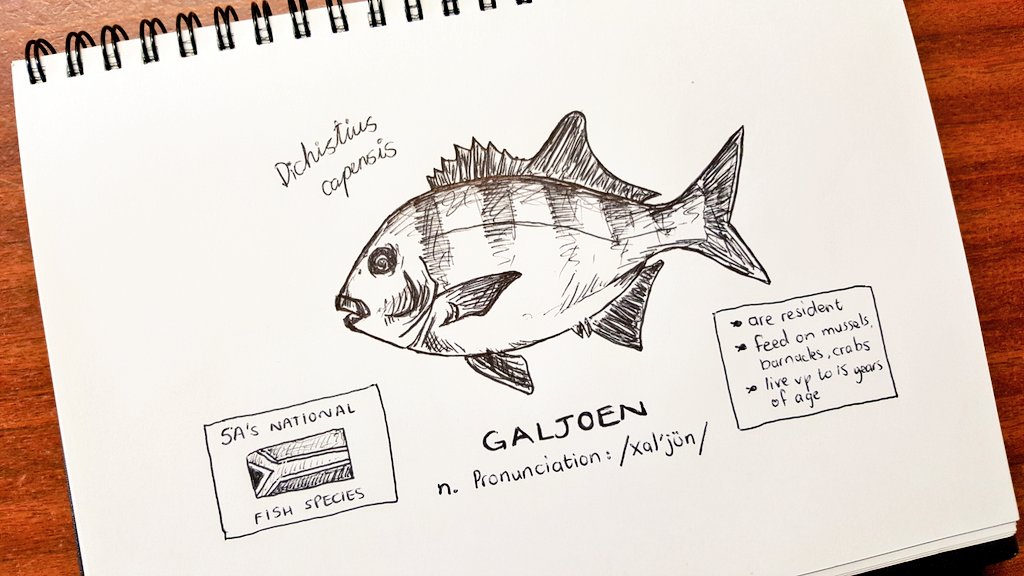 Dichistius
capensis
are resident
feed on mussels,
barnacles, crabs
live up to 15 years
of age
GALJOEN
n. Pronunciation: /xal'jön/
SA's NATIONAL
FISH SPECIES